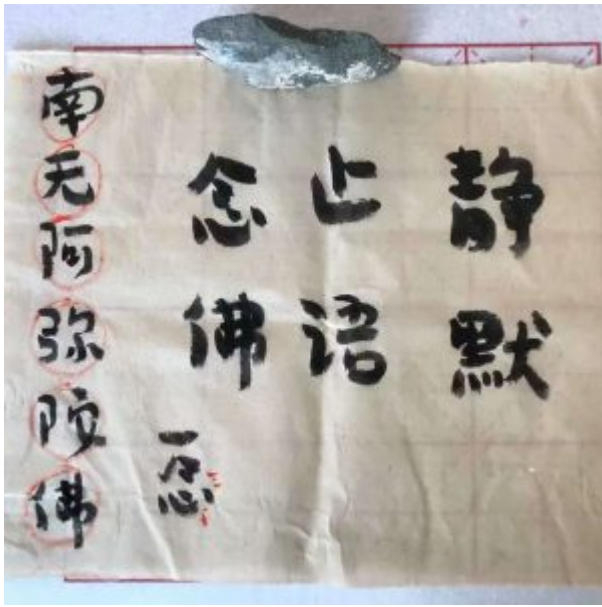 静默
止语
念佛
一念
南无阿弥陀佛